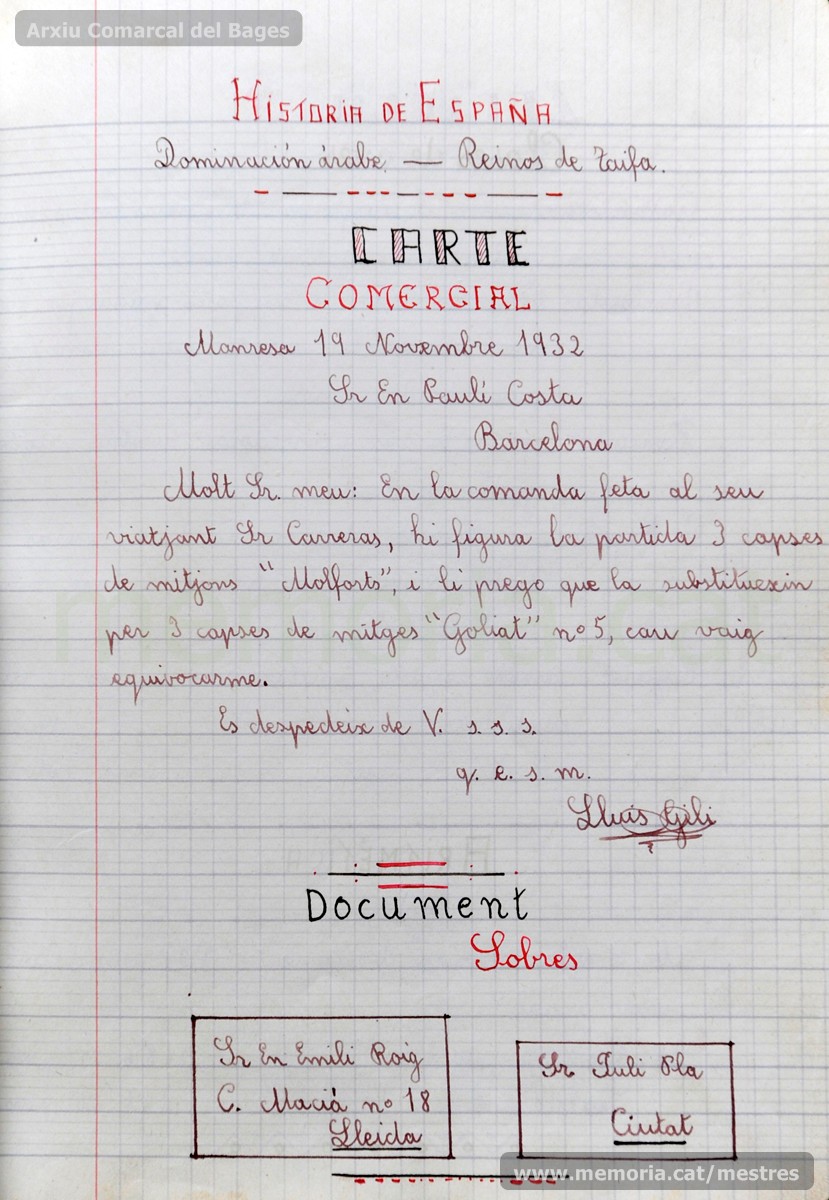 Arxiu Comarcal del Bages
HISTORIA DE ESPAÑA
Dominación árabe. — Reinos de Taifa.
CARTE
COMERCIAL
Manresa 19 Novembre 1932
Sr En Paulí Costa
Barcelona
Molt Sr. meu: En la comanda feta al seu
viatjant Sr Carreras, hi figura la partida 3 capses
de mitjons "Molforts", i li prego que la substituexin
per 3 capses de mitges "Goliat" nº 5, cau vaig
equivocarme.
Es despedeix de V. s. s. s.
q. e. s. m.
Lluis Gili
Document
Sobres
Sr En Emili Roig
C. Macià nº 18
Lleida
Sr. Juli Pla
Ciutat
www.memoria.cat/mestres